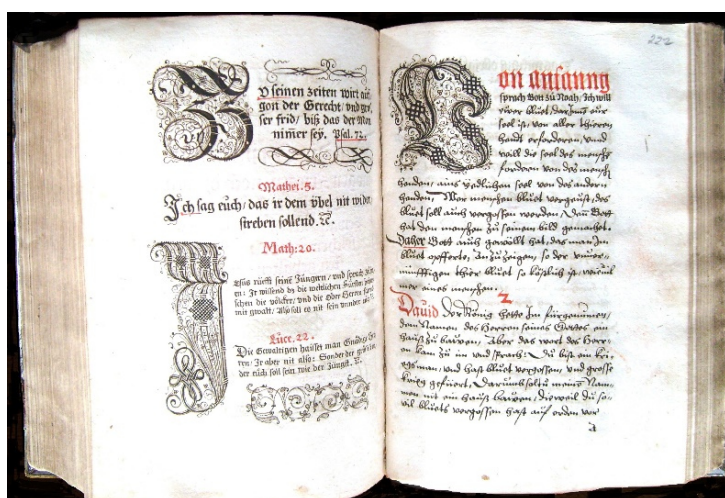 Zu seinen zeiten wirt auf
gon der Gerecht/ und gros
ser frid/ biß das der Mon
nimer sey. Psal. 72.
Mathei. 5.
Ich sag euch/ das ir dem vbel nit wider
streben sollend. Rc.
Math: 20.
Jesus rüefft seine Jüngern/ vnd sprach zu
en: Jr wissend dz die weltlichen Fürsten herr
schen die völcker/ vnd die Oberherren farend
mit gwalt. Also soll es nit sein vnnder eüch
Luce. 22.
Die Gewaltigen haisset man Gnädig her
ren: Jr aber nit also: Sonder der gröst vn
der eüch soll sein wie der Jüngst. Rc.
222
Von anfanng
sprach Gott zu Noah, Ich will
eürer bluet, darinnen eür
seel ist, von aller thieren
handt erforderen, und
will die seel des mensche
forderen von des mensch
handen, ains yedlichen seel von des andern
handen. Wer menschen bluet vergeüst, des
bluet soll auch vergossen werden, dann Gott
hat den menschen zu seinem bild gemachet.
Daher Gott auch gewöllt hat, das man Im
bluet opfferte, anzuzaigen, so der vnuer-
nünfftigen thier bluet so köstlich ist, wieuil
mer eines menschen.
2.
Dauid der König hette Im fürgenommen,
dem Namen des Herren seines Gottes ein
hauß zu bawen. Aber das wort des Herr-
en kam zu im vnd sprach: Du bist ein kri-
gsman, vnd hast bluet vergossen, vnd grosse
krieg gefüert. Darumb soltu meinem Nam-
men nit ein hauß bawen, dieweil du so-
vil bluets vergossen hast auf erden vor
a